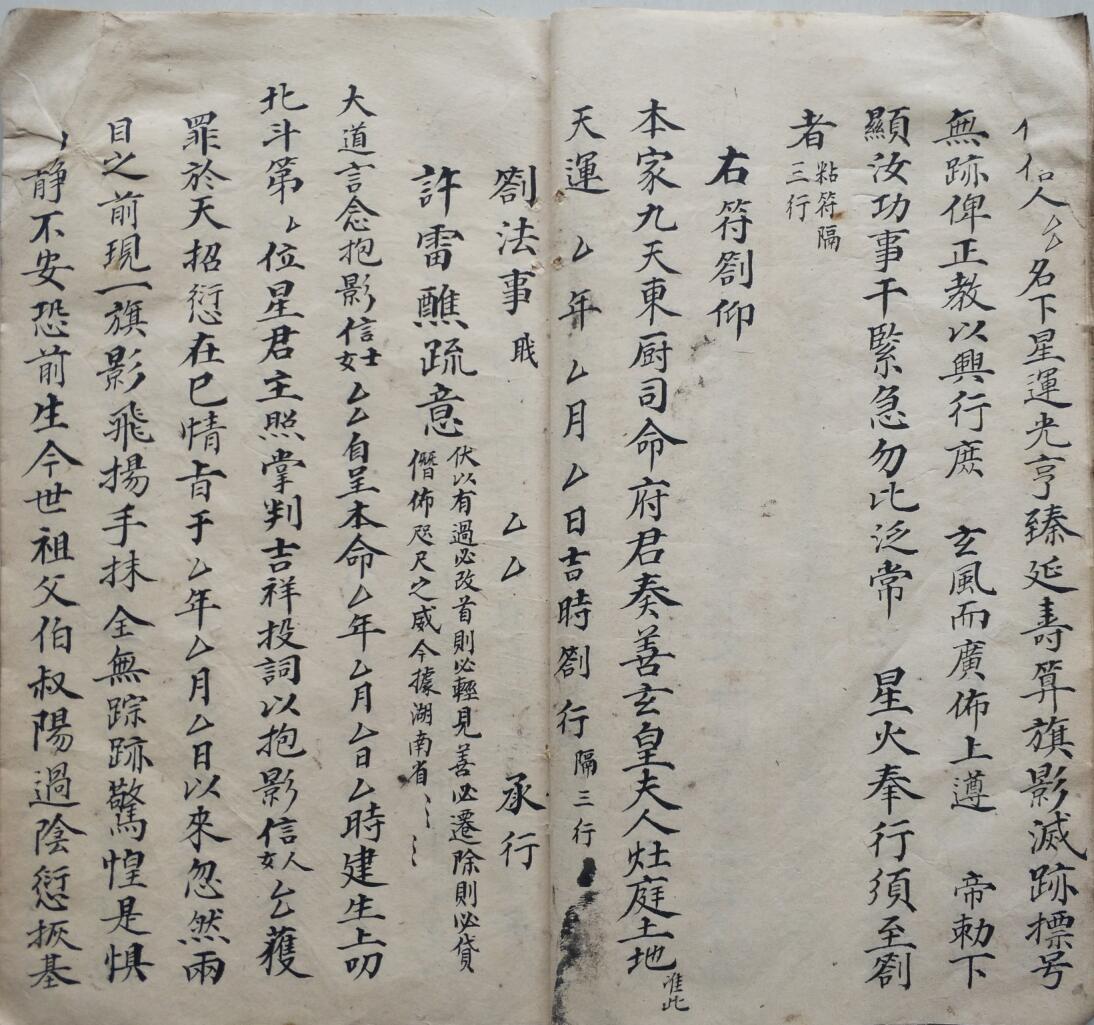 人厶名下星運光亨臻延壽算旗影滅跡摽号
無跡俾正教以興行庶 玄風而廣佈上遵 帝勅下
顯汝功事干緊急勿比泛常 星火奉行須至劄
者 粘符隔三行
右符劄仰
本家九天東厨司命府君奏善玄皇夫人灶庭土地 准此
天運 厶年厶月厶日吉時劄行 隔三行
劄法事 戢 厶厶 承行
許雷醮疏意 伏以有過必改首則必輕見善必遷除則必貸
僭佈咫尺之威今據湖南省
大道言念抱影信士女厶厶自呈本命厶年厶月厶日厶時建生上叨
北斗第厶位星君主照掌判吉祥投詞以抱影信人女厶獲
罪於天招愆在已情旨于厶年厶月厶日以來忽然兩
目之前現一旗影飛揚手抹全無踪跡驚惶是惧
静不安恐前生今世祖父伯叔陽過陰愆挀基